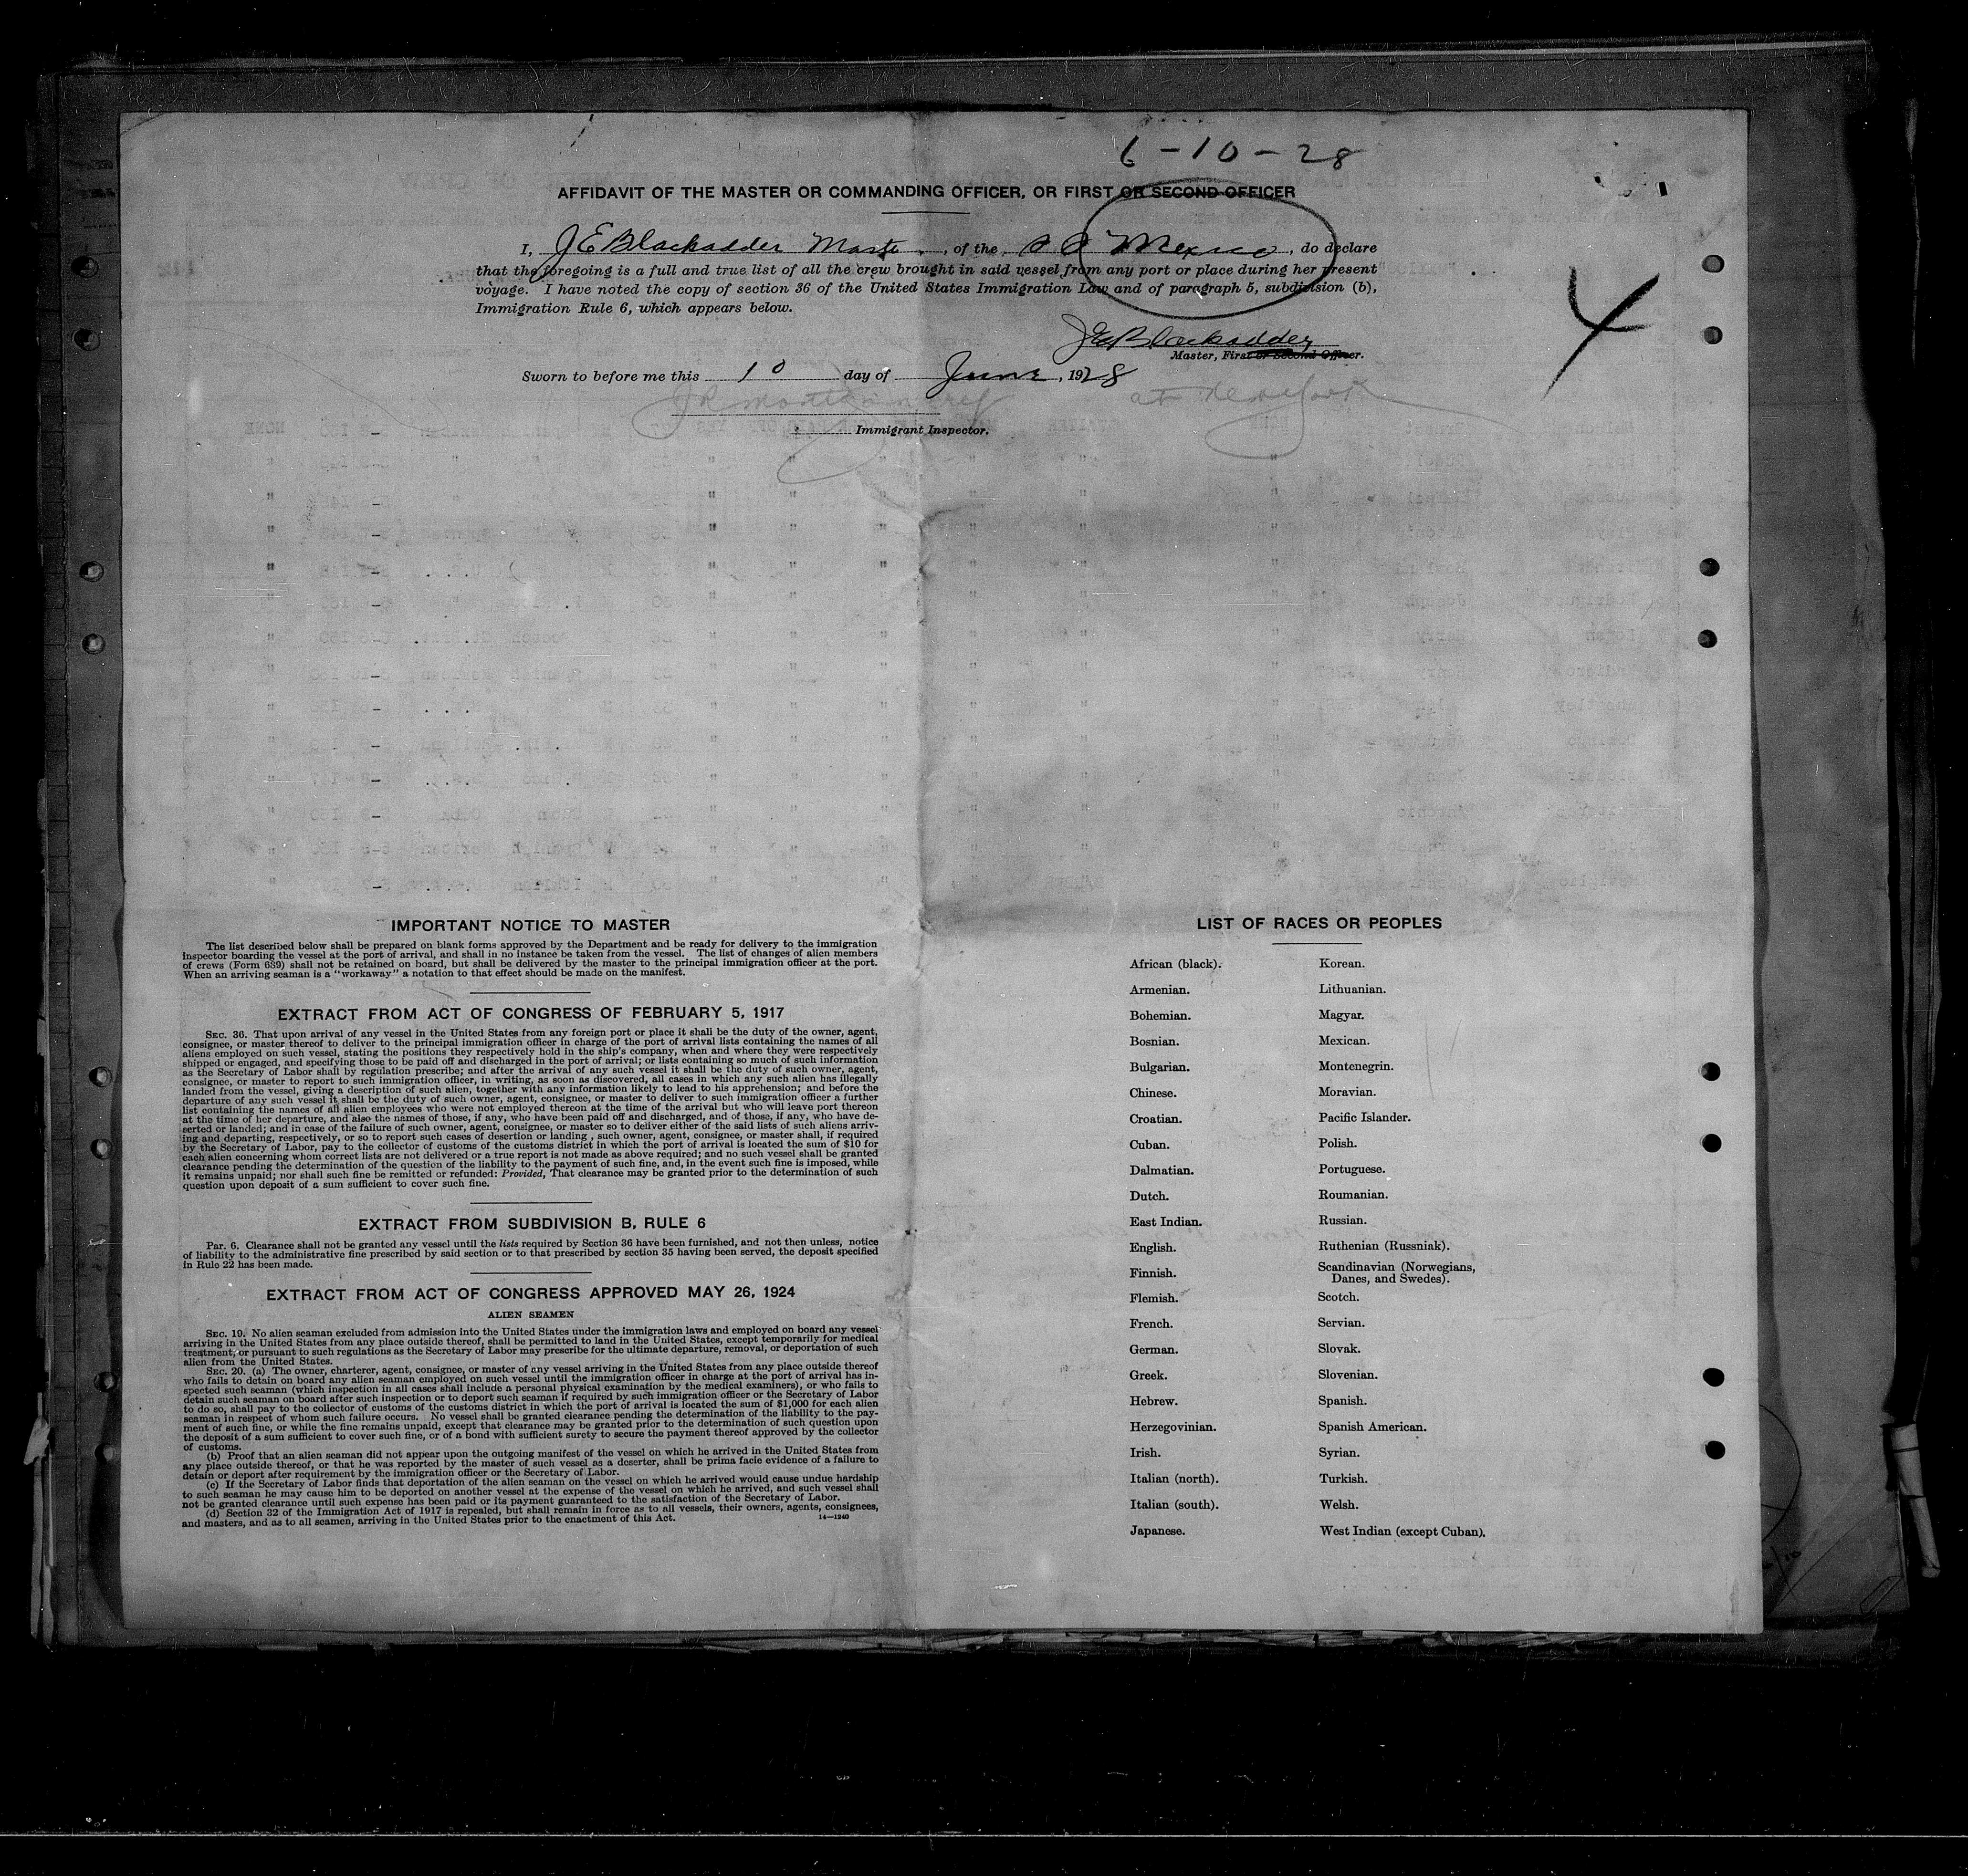 6-10-28
AFFIDAVIT OF THE MASTER OR COMMANDING OFFICER, OR FIRST OR SECOND OFFICER
I, J E Blackadder Master, of the S S Mexico, do declare
that the foregoing is a full and true list of all the crew brought in said vessel from any port or place during her present
voyage. I have noted the copy of section 36 of the United States Immigration Law and of paragraph 5, subdivision (b),
Immigration Rule 6, which appears below.
4
J E Blackadder
Master, First or Second Officer.
Sworn to before me this 10 day of June, 1928
at New York
Immigrant Inspector.
IMPORTANT NOTICE TO MASTER
The list described below shall be prepared on blank forms approved by the Department and be ready for delivery to the immigration
inspector boarding the vessel at the port of arrival, and shall in no instance be taken from the vessel. The list of changes of alien members
of crews (Form 689) shall not be retained on board, but shall be delivered by the master to the principal immigration officer at the port.
When an arriving seaman is a "workaway" a notation to that effect should be made on the manifest.
EXTRACT FROM ACT OF CONGRESS OF FEBRUARY 5, 1917
SEC. 36. That upon arrival of any vessel in the United States from any foreign port or place it shall be the duty of the owner, agent,
consignee, or master thereof to deliver to the principal immigration officer in charge of the port of arrival lists containing the names of all
aliens employed on such vessel, stating the positions they respectively hold in the ship's company, when and where they were respectively
shipped or engaged, and specifying those to be paid off and discharged in the port of arrival; or lists containing so much of such information
as the Secretary of Labor shall by regulation prescribe; and after the arrival of any such vessel it shall be the duty of such owner, agent,
consignee, or master to report to such immigration officer, in writing, as soon as discovered, all cases in which any such alien has illegally
landed from the vessel, giving a description of such alien, together with any information likely to lead to his apprehension; and before the
departure of any such vessel it shall be the duty of such owner, agent, consignee, or master to deliver to such immigration officer a further
list containing the names of all alien employees who were not employed thereon at the time of the arrival but who will leave port thereon
at the time of her departure, and also the names of those, if any, who have been paid off and discharged, and of those, if any, who have de-
serted or landed; and in case of the failure of such owner, agent, consignee, or master so to deliver either of the said lists of such aliens arriv-
ing and departing, respectively, or so to report such cases of desertion or landing, such owner, agent, consignee, or master shall, if required
by the Secretary of Labor, pay to the collector of customs of the customs district in which the port of arrival is located the sum of $10 for
each alien concerning whom correct lists are not delivered or a true report is not made as above required; and no such vessel shall be granted
clearance pending the determination of the question of the liability to the payment of such fine, and, in the event such fine is imposed, while
it remains unpaid; nor shall such fine be remitted or refunded: Provided, That clearance may be granted prior to the determination of such
question upon deposit of a sum sufficient to cover such fine.
EXTRACT FROM SUBDIVISION B, RULE 6
Par. 6. Clearance shall not be granted any vessel until the lists required by Section 36 have been furnished, and not then unless, notice
of liability to the administrative fine prescribed by said section or to that prescribed by section 35 having been served, the deposit specified
in Rule 22 has been made.
EXTRACT FROM ACT OF CONGRESS APPROVED MAY 26, 1924
ALIEN SEAMEN
SEC. 19. No alien seaman excluded from admission into the United States under the immigration laws and employed on board any vessel
arriving in the United States from any place outside thereof, shall be permitted to land in the United States, except temporarily for medical
treatment, or pursuant to such regulations as the Secretary of Labor may prescribe for the ultimate departure, removal, or deportation of such
alien from the United States.
SEC. 20. (a) The owner, charterer, agent, consignee, or master of any vessel arriving in the United States from any place outside thereof
who fails to detain on board any alien seaman employed on such vessel until the immigration officer in charge at the port of arrival has in-
spected such seaman (which inspection in all cases shall include a personal physical examination by the medical examiners), or who fails to
detain such seaman on board after such inspection or to deport such seaman if required by such immigration officer or the Secretary of Labor
to do so, shall pay to the collector of customs of the customs district in which the port of arrival is located the sum of $1,000 for each alien
seaman in respect of whom such failure occurs. No vessel shall be granted clearance pending the determination of the liability to the pay-
ment of such fine, or while the fine remains unpaid, except that clearance may be granted prior to the determination of such question upon
the deposit of a sum sufficient to cover such fine, or of a bond with sufficient surety to secure the payment thereof approved by the collector
of customs.
(b) Proof that an alien seaman did not appear upon the outgoing manifest of the vessel on which he arrived in the United States from
any place outside thereof, or that he was reported by the master of such vessel as a deserter, shall be prima facie evidence of a failure to
detain or deport after requirement by the immigration officer or the Secretary of Labor.
(c) If the Secretary of Labor finds that deportation of the alien seaman on the vessel on which he arrived would cause undue hardship
to such seaman he may cause him to be deported on another vessel at the expense of the vessel on which he arrived, and such vessel shall
not be granted clearance until such expense has been paid or its payment guaranteed to the satisfaction of the Secretary of Labor.
(d) Section 32 of the Immigration Act of 1917 is repealed, but shall remain in force as to all vessels, their owners, agents, consignees,
and masters, and as to all seamen, arriving in the United States prior to the enactment of this Act.
14—1240
LIST OF RACES OR PEOPLES
African (black).
Armenian.
Bohemian.
Bosnian.
Bulgarian.
Chinese.
Croatian.
Cuban.
Dalmatian.
Dutch.
East Indian.
English.
Finnish.
Flemish.
French.
German.
Greek.
Hebrew.
Herzegovinian.
Irish.
Italian (north).
Italian (south).
Japanese.
Korean.
Lithuanian.
Magyar.
Mexican.
Montenegrin.
Moravian.
Pacific Islander.
Polish.
Portuguese.
Roumanian.
Russian.
Ruthenian (Russniak).
Scandinavian (Norwegians,
Danes, and Swedes).
Scotch.
Servian.
Slovak.
Slovenian.
Spanish.
Spanish American.
Syrian.
Turkish.
Welsh.
West Indian (except Cuban).